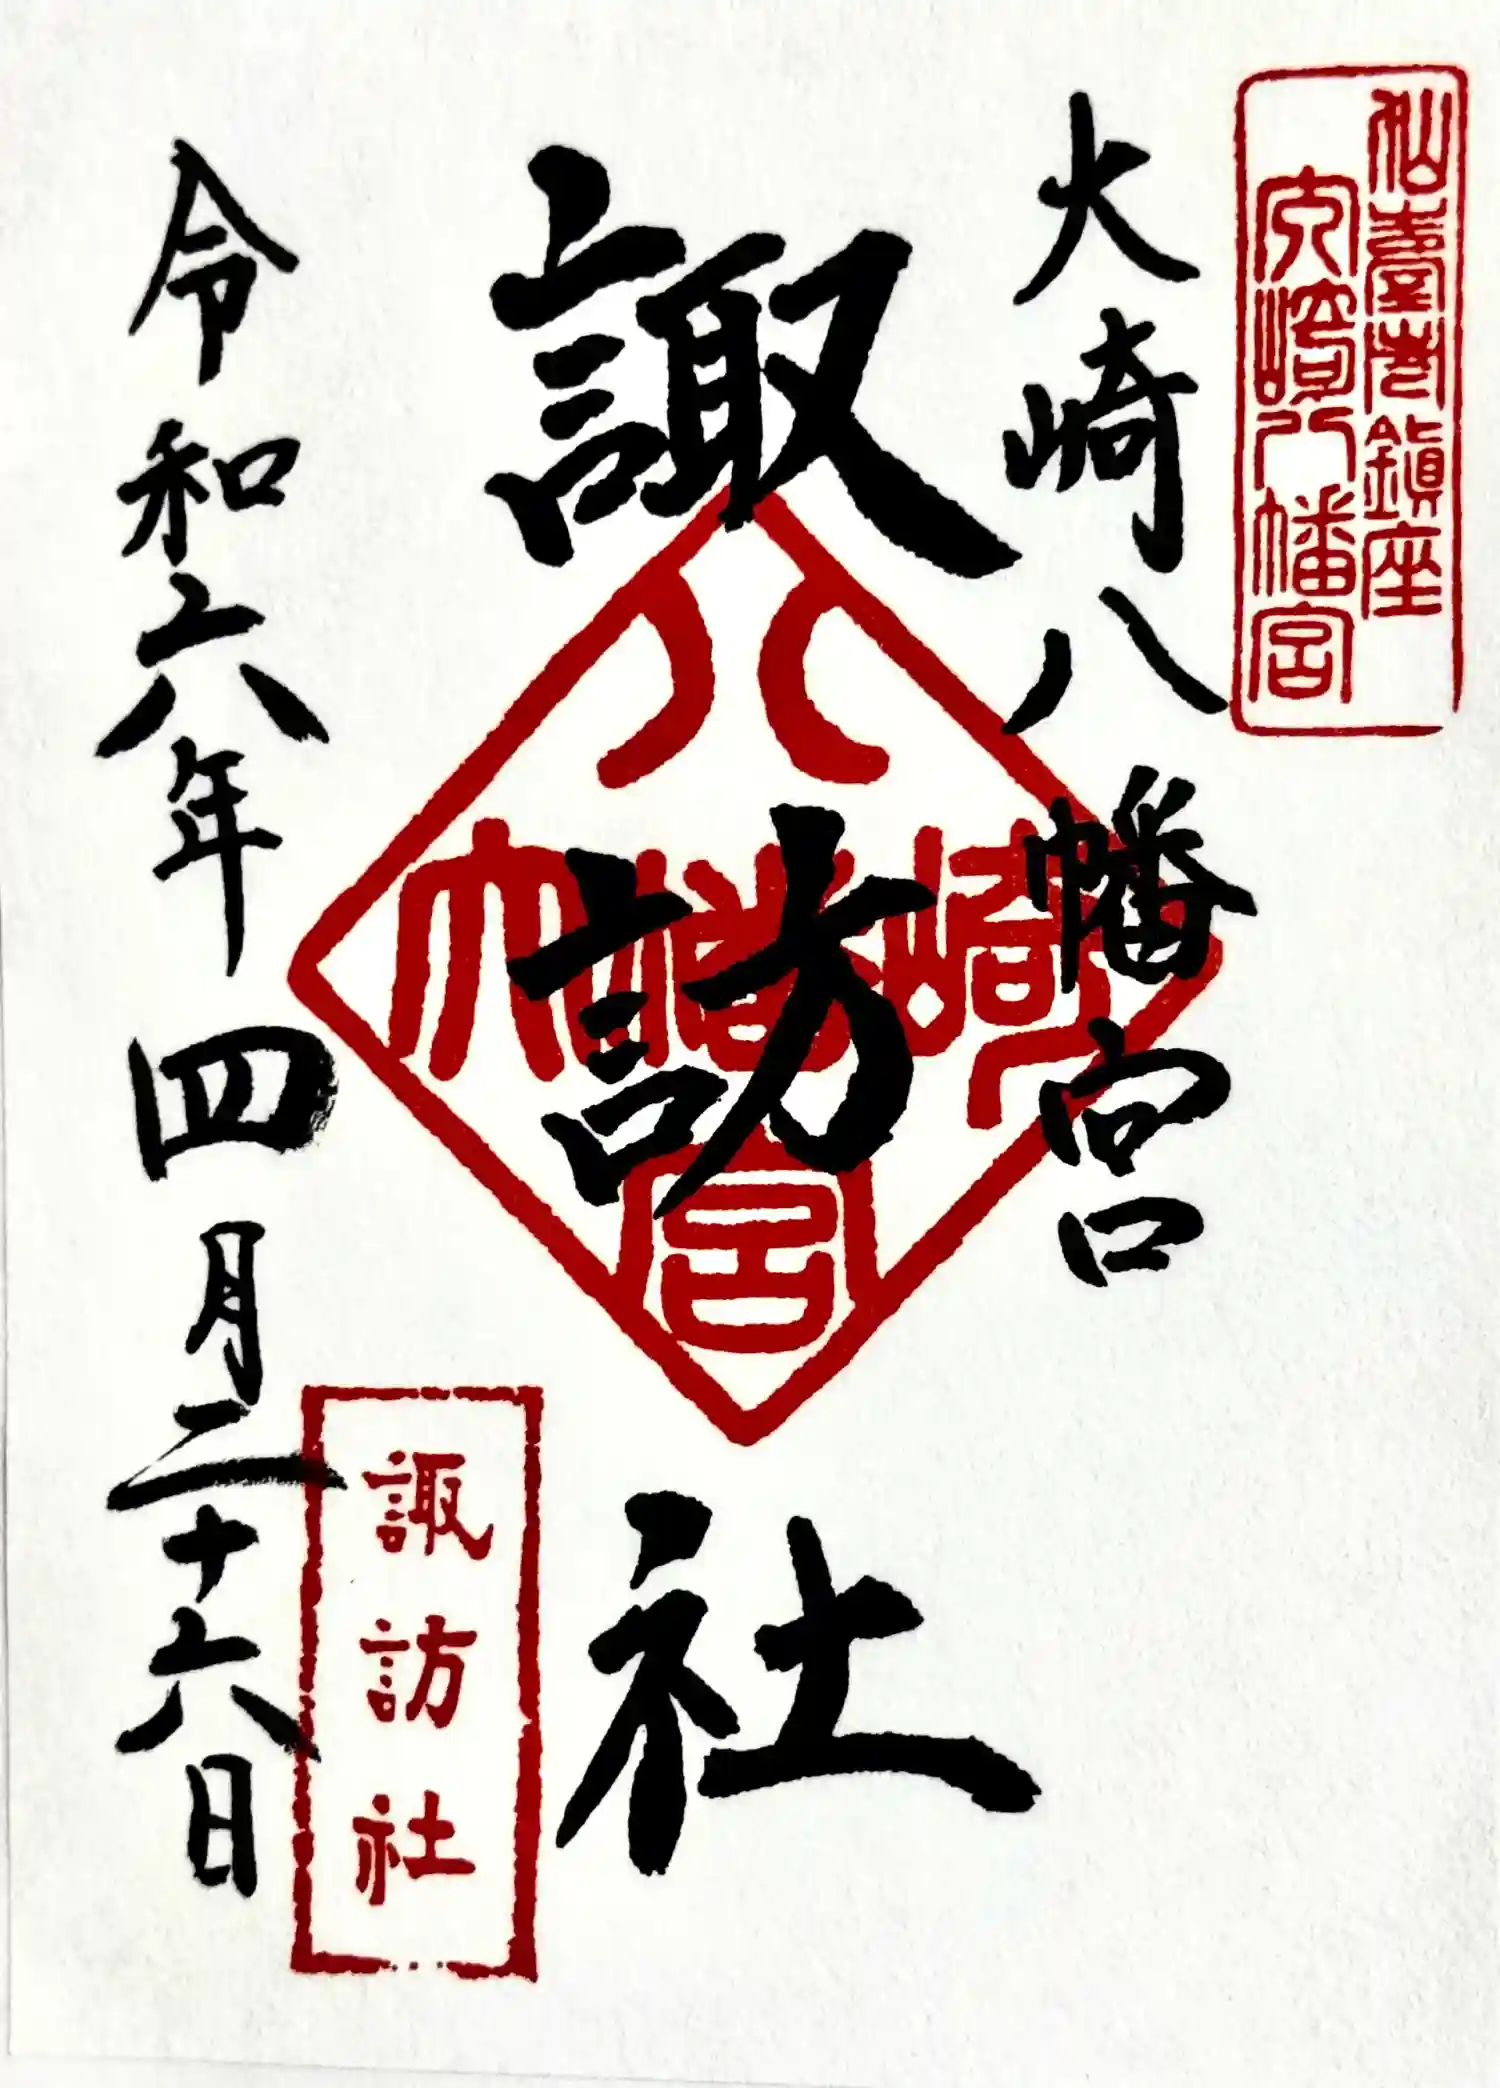 仙臺市鎮座
大崎八幡宮
大崎八幡宮
諏訪社
八幡
大崎
宮
諏訪社
令和六年四月二十六日